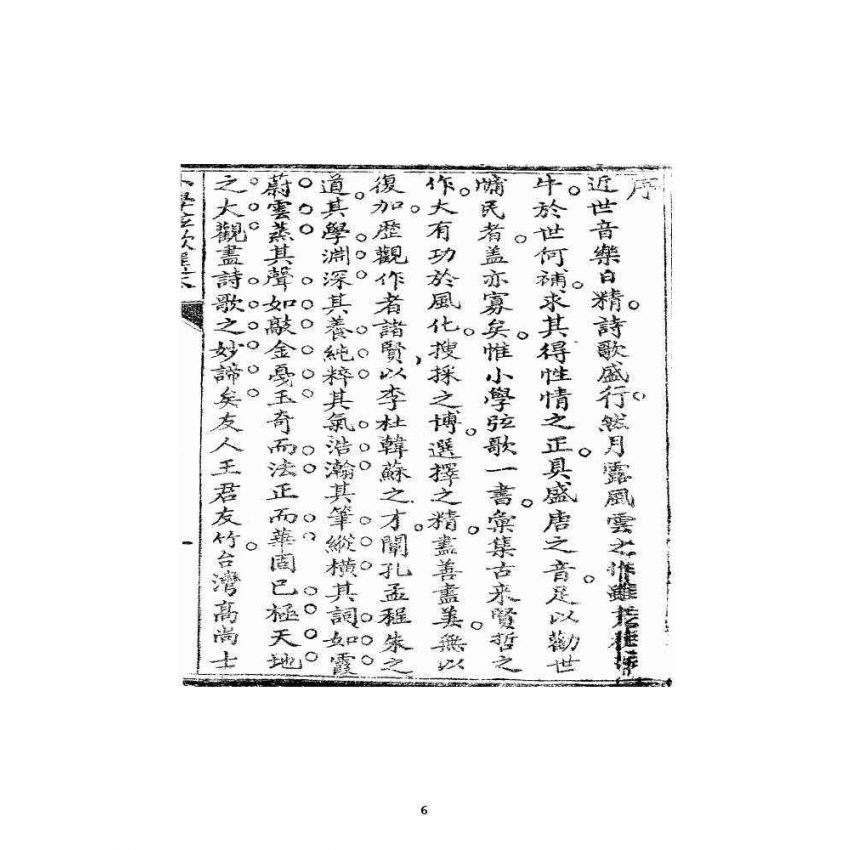 序
近世音樂日精詩歌盛行然月露風雲之作雖
牛於世何補求其得性情之正具盛唐之音足以勸世
牖民者盖亦寡矣惟小學弦歌一書彙集古來賢哲之
作大有功於風化搜採之博選擇之精盡善盡美無以
復加歷觀作者諸賢以李杜韓蘇之才闡孔孟程朱之
道其學淵深其養純粹其氣浩瀚其筆縱橫其詞如霞
蔚雲蒸其聲如敲金戞玉奇而法正而華固已極天地
之大觀盡詩歌之妙諦矣友人王君友竹台灣高尚士
6